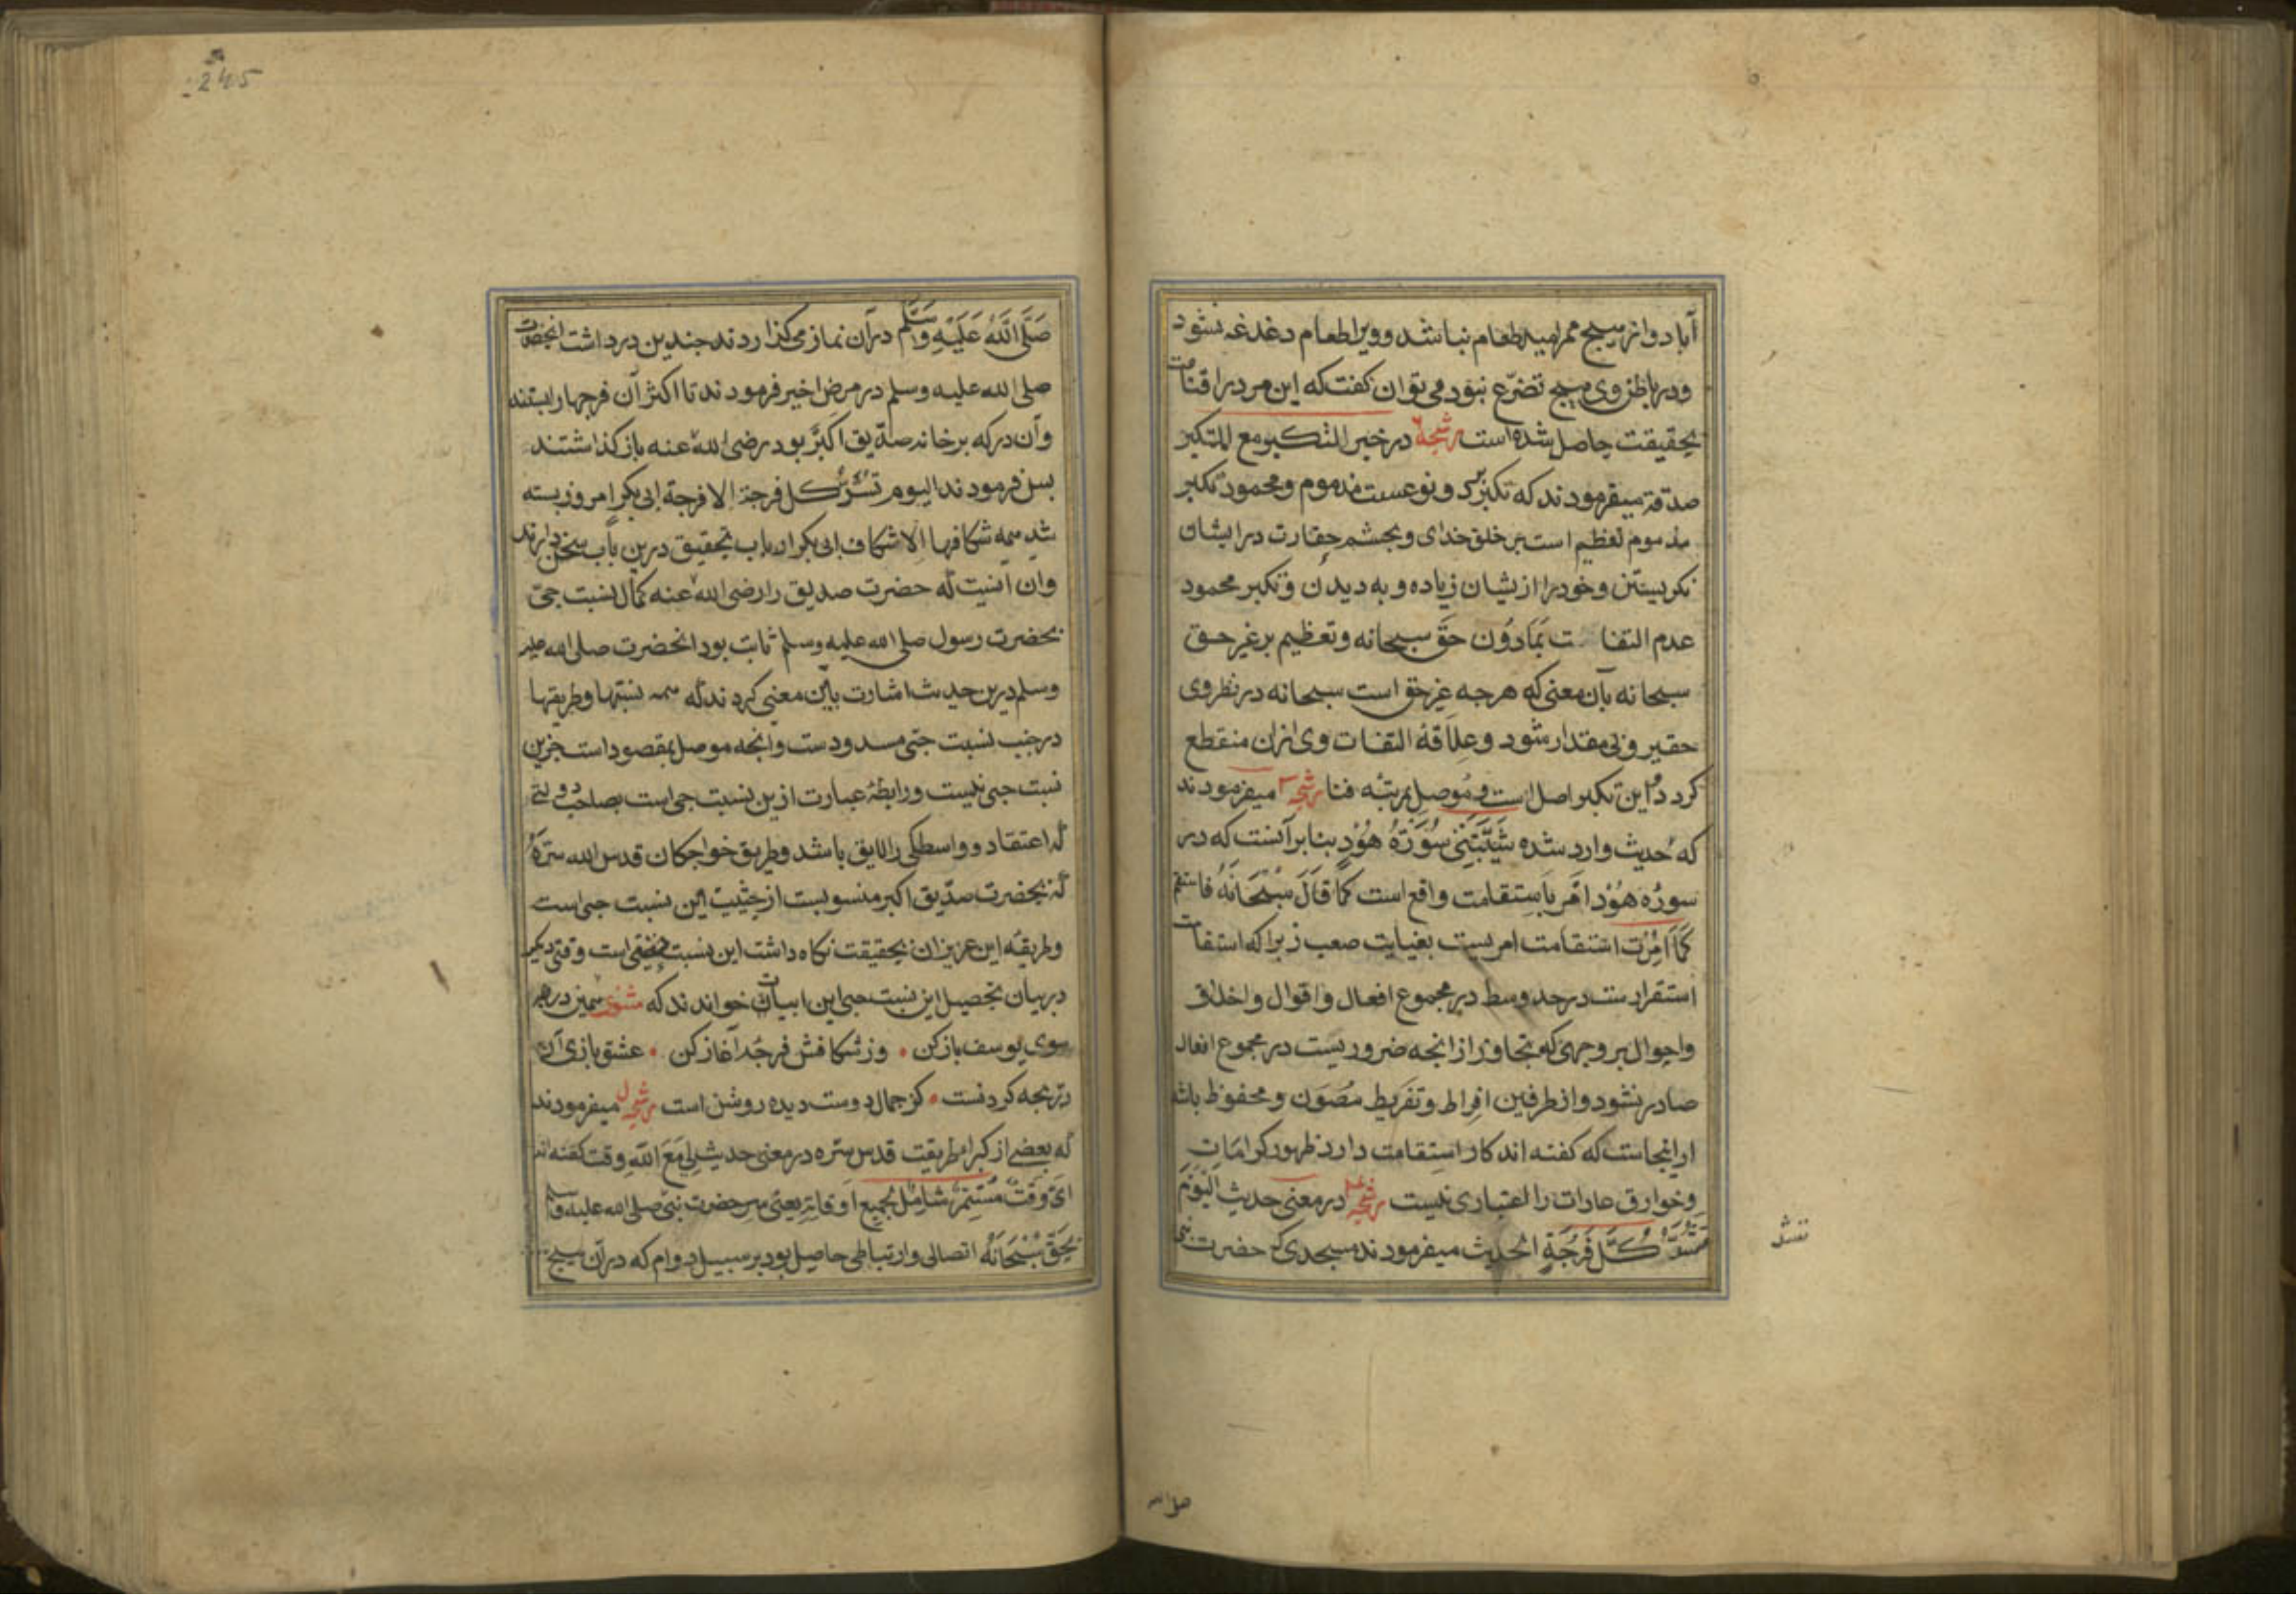 آباد و از هیچ ممر امید طعام نباشد و ویرا طعام دغدغه نشود
و در باطن وی هیچ تضرع نبود می توان کفت که این مرد را قناعت
بحقیقت حاصل شده است رشحه در خبر التکبر مع المتکبر
صدقة میفرمودند که تکبر بر دو نوعست مذموم و محمود تکبر
مذموم تعظیم است بر خلق خدای و بچشم حقارت در ایشان
نکریستن و خود را از یشان زیاده و به دیدن و تکبر محمود
عدم التفات بَمادُون حَق سبحانه و تعظیم بر غیر حق
سبحانه بآن معنی که هرجه غیر حق است سبحانه در نظر وی
حقیر و بی مقدار شود و علاقهٔ التفات وی از ان منقطع
کردد و این تکبر اصل است و مُوصِل بمرتبه فنا رشحه میفرمودند
که حدیث وارد شده شَیَّبَتنِی سُورَةُ هُوْدٍ بنا بر آنست که در
سوره هُوْد امر باستقامت واقع است کَمَا قَالَ سُبْحَانَهُ فاستقم
کَمَا اُمِرْتَ استقامت امریست بغایت صعب زیرا که استقامت
استقرارست در حد وسط در مجموع افعال و اقوال و اخلاق
و احوال بر وجهی که تجاوز از انجه ضروریست در مجموع افعال
صادر نشود و از طرفین افراط و تفریط مصَوَن و محفوظ باشد
ازانجاست که کفته اند کار استقامت دارد ظهور کرامات
و خوارق عادات را اعتباری نیست رشحه در معنی حدیث الیَوْمَ
تُسَدُّ کُلَّ فُرْجَةٍ الحدیث میفرمودند مسجدی که حضرت نبی
صلی الله
245
صَلَّی اللّهُ عَلَیْهِ وَسَلَّم در آن نماز می کذاردند جندین در داشت انحضرت
صلی الله علیه وسلم در مرض اخیر فرمودند تا اکثر آن فرجها را بستند
و آن در که بر خانه صدّیق اکبر بود رضی الله عنه باز کذاشتند
پس فرمودند الیوم تسد کل فرجة الا فرجة ابی بکر امروز بسته
شد همه شکافها الا شکاف ابی بکر ارباب تحقیق درین باب سخن دارند
وان آنیت که حضرت صدیق را رضی الله عنه کمال نسبت حبی
بحضرت رسول صلی الله علیه وسلم ثابت بود انحضرت صلی الله علیه
وسلم درین حدیث اشارت باین معنی کردند که همه نسبتها و طریقها
در جنب نسبت حبی مسدودست و انجه موصل بمقصود است جزین
نسبت حبی نیست و رابطهٔ عبارت ازین نسبت حبی است بصاحب دولتی
که اعتقاد و واسطکی را لایق باشد و طریق خواجکان قدس الله سرهُ
که بحضرت صدّیق اکبر منسوبست از حیثیت این نسبت حبی است
و طریقه این عزیزان بحقیقت نکاه داشت این نسبت حبی است وقتی دیکر
در بیان تحصیل این نسبت حبی این ابیات خواندند که مثنوی همین در هر
سوی یوسف باز کن • وز شکافش فرجهٔ آغاز کن • عشق بازی آن
دریجه کردنست • کز جمال دوست دیده روشن است رشحه میفرمودند
که بعضی از کبراء طریقت قدس سره در معنی حدیث لِی مَعَ اللّهِ وقت کفته اند
ای وَقتٌ مُسْتَمِرٌّ شَامِلٌ لجمیع اوقاته یعنی مر حضرت نبی صلی الله علیه وسلم
بحَقّ سُبْحَانَهُ اتصالی و ارتباطی حاصل بود بر سبیل دوام که در آن هیچ